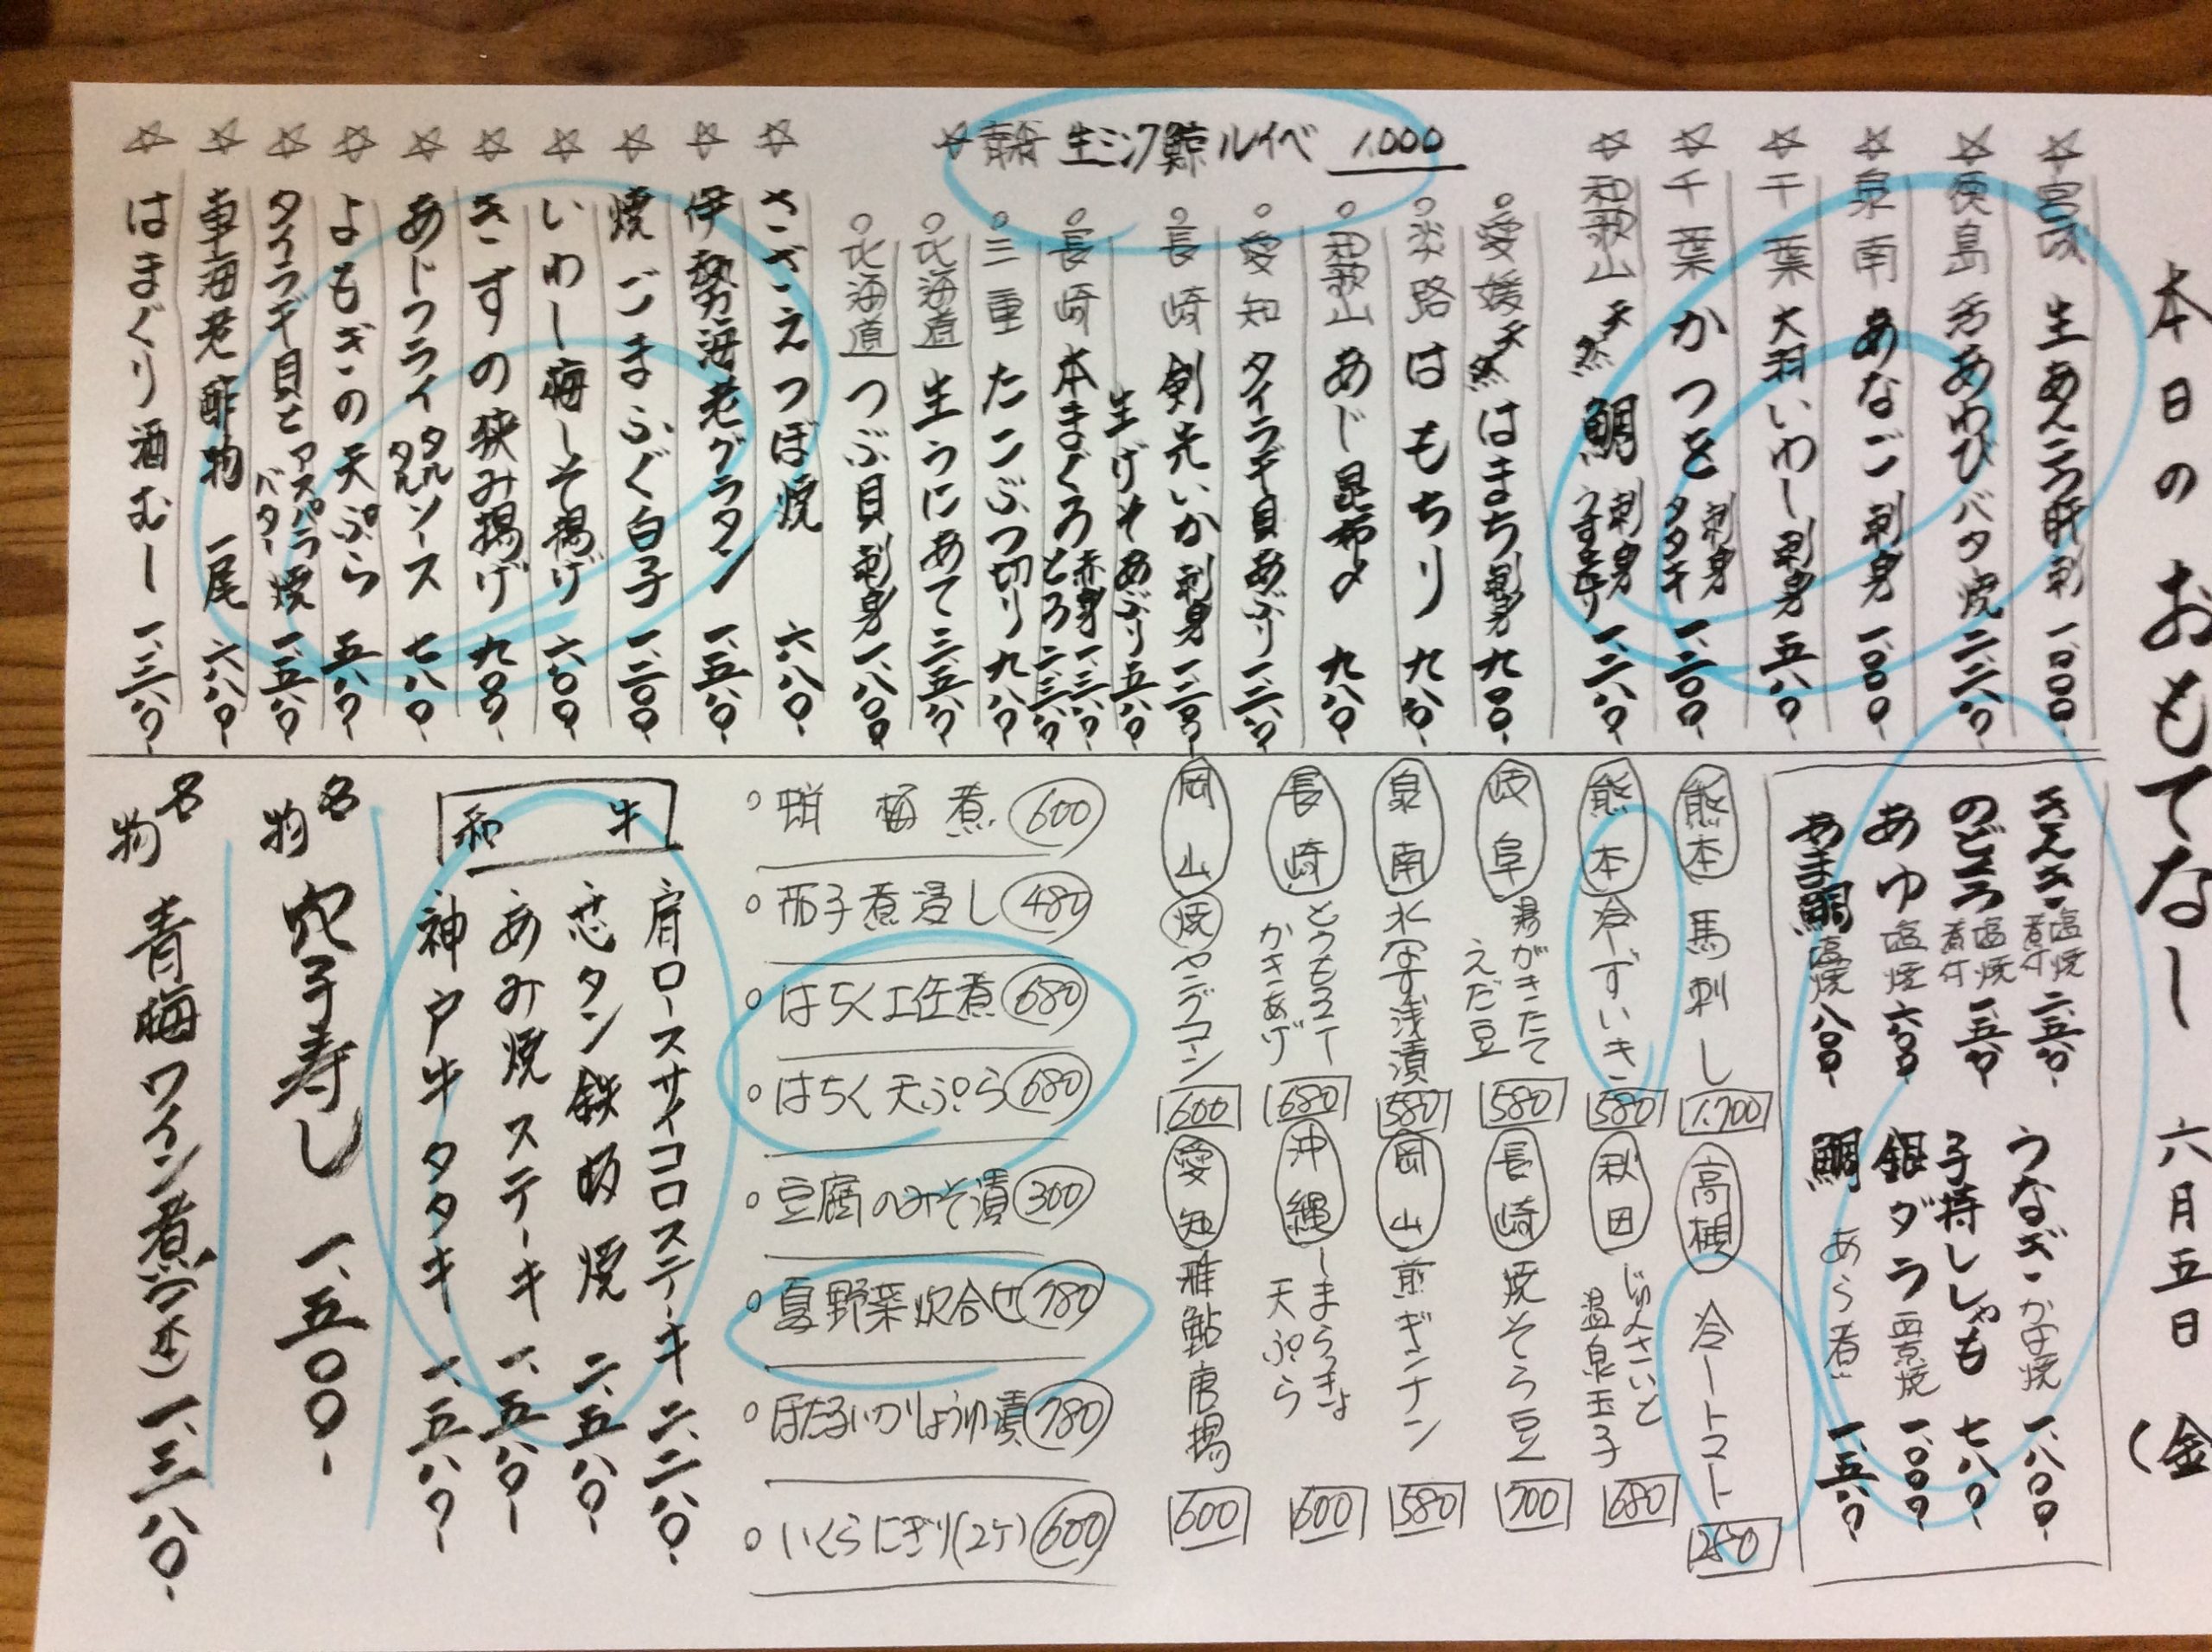 本日のおもてなし 六月五日(金
☆宮城 生あんこう肝刺 一、〇〇〇-
☆徳島 活あわびバタ焼 二、二八〇-
☆泉南 あなご 刺身 一、〇〇〇-
☆千葉 大羽いわし 刺身 五八〇-
☆千葉 かつを 刺身 タタキ 一、二〇〇-
☆和歌山 天然 鯛 刺身 うす造り 一、二八〇-
☆青森 生ミンク鯨ルイベ 1.000
○愛媛 天然 はまち 刺身 九〇〇-
○淡路 はもちり 九八〇-
○和歌山 あじ昆布〆 九八〇-
○愛知 タイラギ貝あぶり 一、二八〇-
○長崎 剣先いか 刺身 一、二〇〇-
生げそあぶり 五八〇-
○長崎 本まぐろ 赤身 一、三八〇- とろ 二、三八〇-
○三重 たこぶつ切り 九八〇-
○北海道 生うにあて 三、五八〇-
○北海道 つぶ貝 刺身 一、八〇〇-
☆さざえつぼ焼 六八〇-
☆伊勢海老グラタン 一、五八〇-
☆焼ごまふぐ白子 一、二〇〇-
☆いわし梅しそ揚げ 六〇〇-
☆きすの挟み揚げ 九〇〇-
☆あじフライ タルタルソース 七八〇-
☆よもぎの天ぷら 五八〇-
☆タイラギ貝とアスパラバター焼 一、五八〇-
☆車海老酢物 一尾 六八〇-
☆はまぐり酒むし 一、三八〇-
きんき 塩焼 煮付 二、五八〇-
のどぐろ 塩焼 煮付 一、五八〇-
あゆ 塩焼 六〇〇-
あま鯛 塩焼 八〇〇-
うなぎ かば焼 一、八〇〇-
子持ししゃも 七八〇-
銀ダラ 西京焼 一、〇〇〇-
鯛 あら煮 一、五八〇-
熊本 馬刺し 1.700
熊本 冷ずいき 580
岐阜 湯がきたてえだ豆 580
泉南 水なす浅漬 580
長崎 とうもろこしかきあげ 680
岡山 焼ヤングコーン 600
高槻 冷しトマト 250
秋田 じゅんさいと温泉玉子 680
長崎 焼そら豆 700
岡山 煎ギンナン 580
沖縄 しまらっきょ天ぷら 600
愛知 稚鮎唐揚 600
○蛸梅煮 600
○茄子煮浸し 480
○はちく土佐煮 680
○はちく天ぷら 680
○豆腐のみそ漬 300
○夏野菜炊合せ 780
○ほたるいかしょうゆ漬 780
○いくらにぎり(2ケ) 600
和牛
肩ロースサイコロステーキ 二、二八〇-
芯タン鉄板焼 二、五八〇-
あみ焼ステーキ 一、五八〇-
神戸牛タタキ 一、五八〇-
名物 穴子寿し 一、五〇〇-
名物 青梅ワイン煮 一、三八〇-